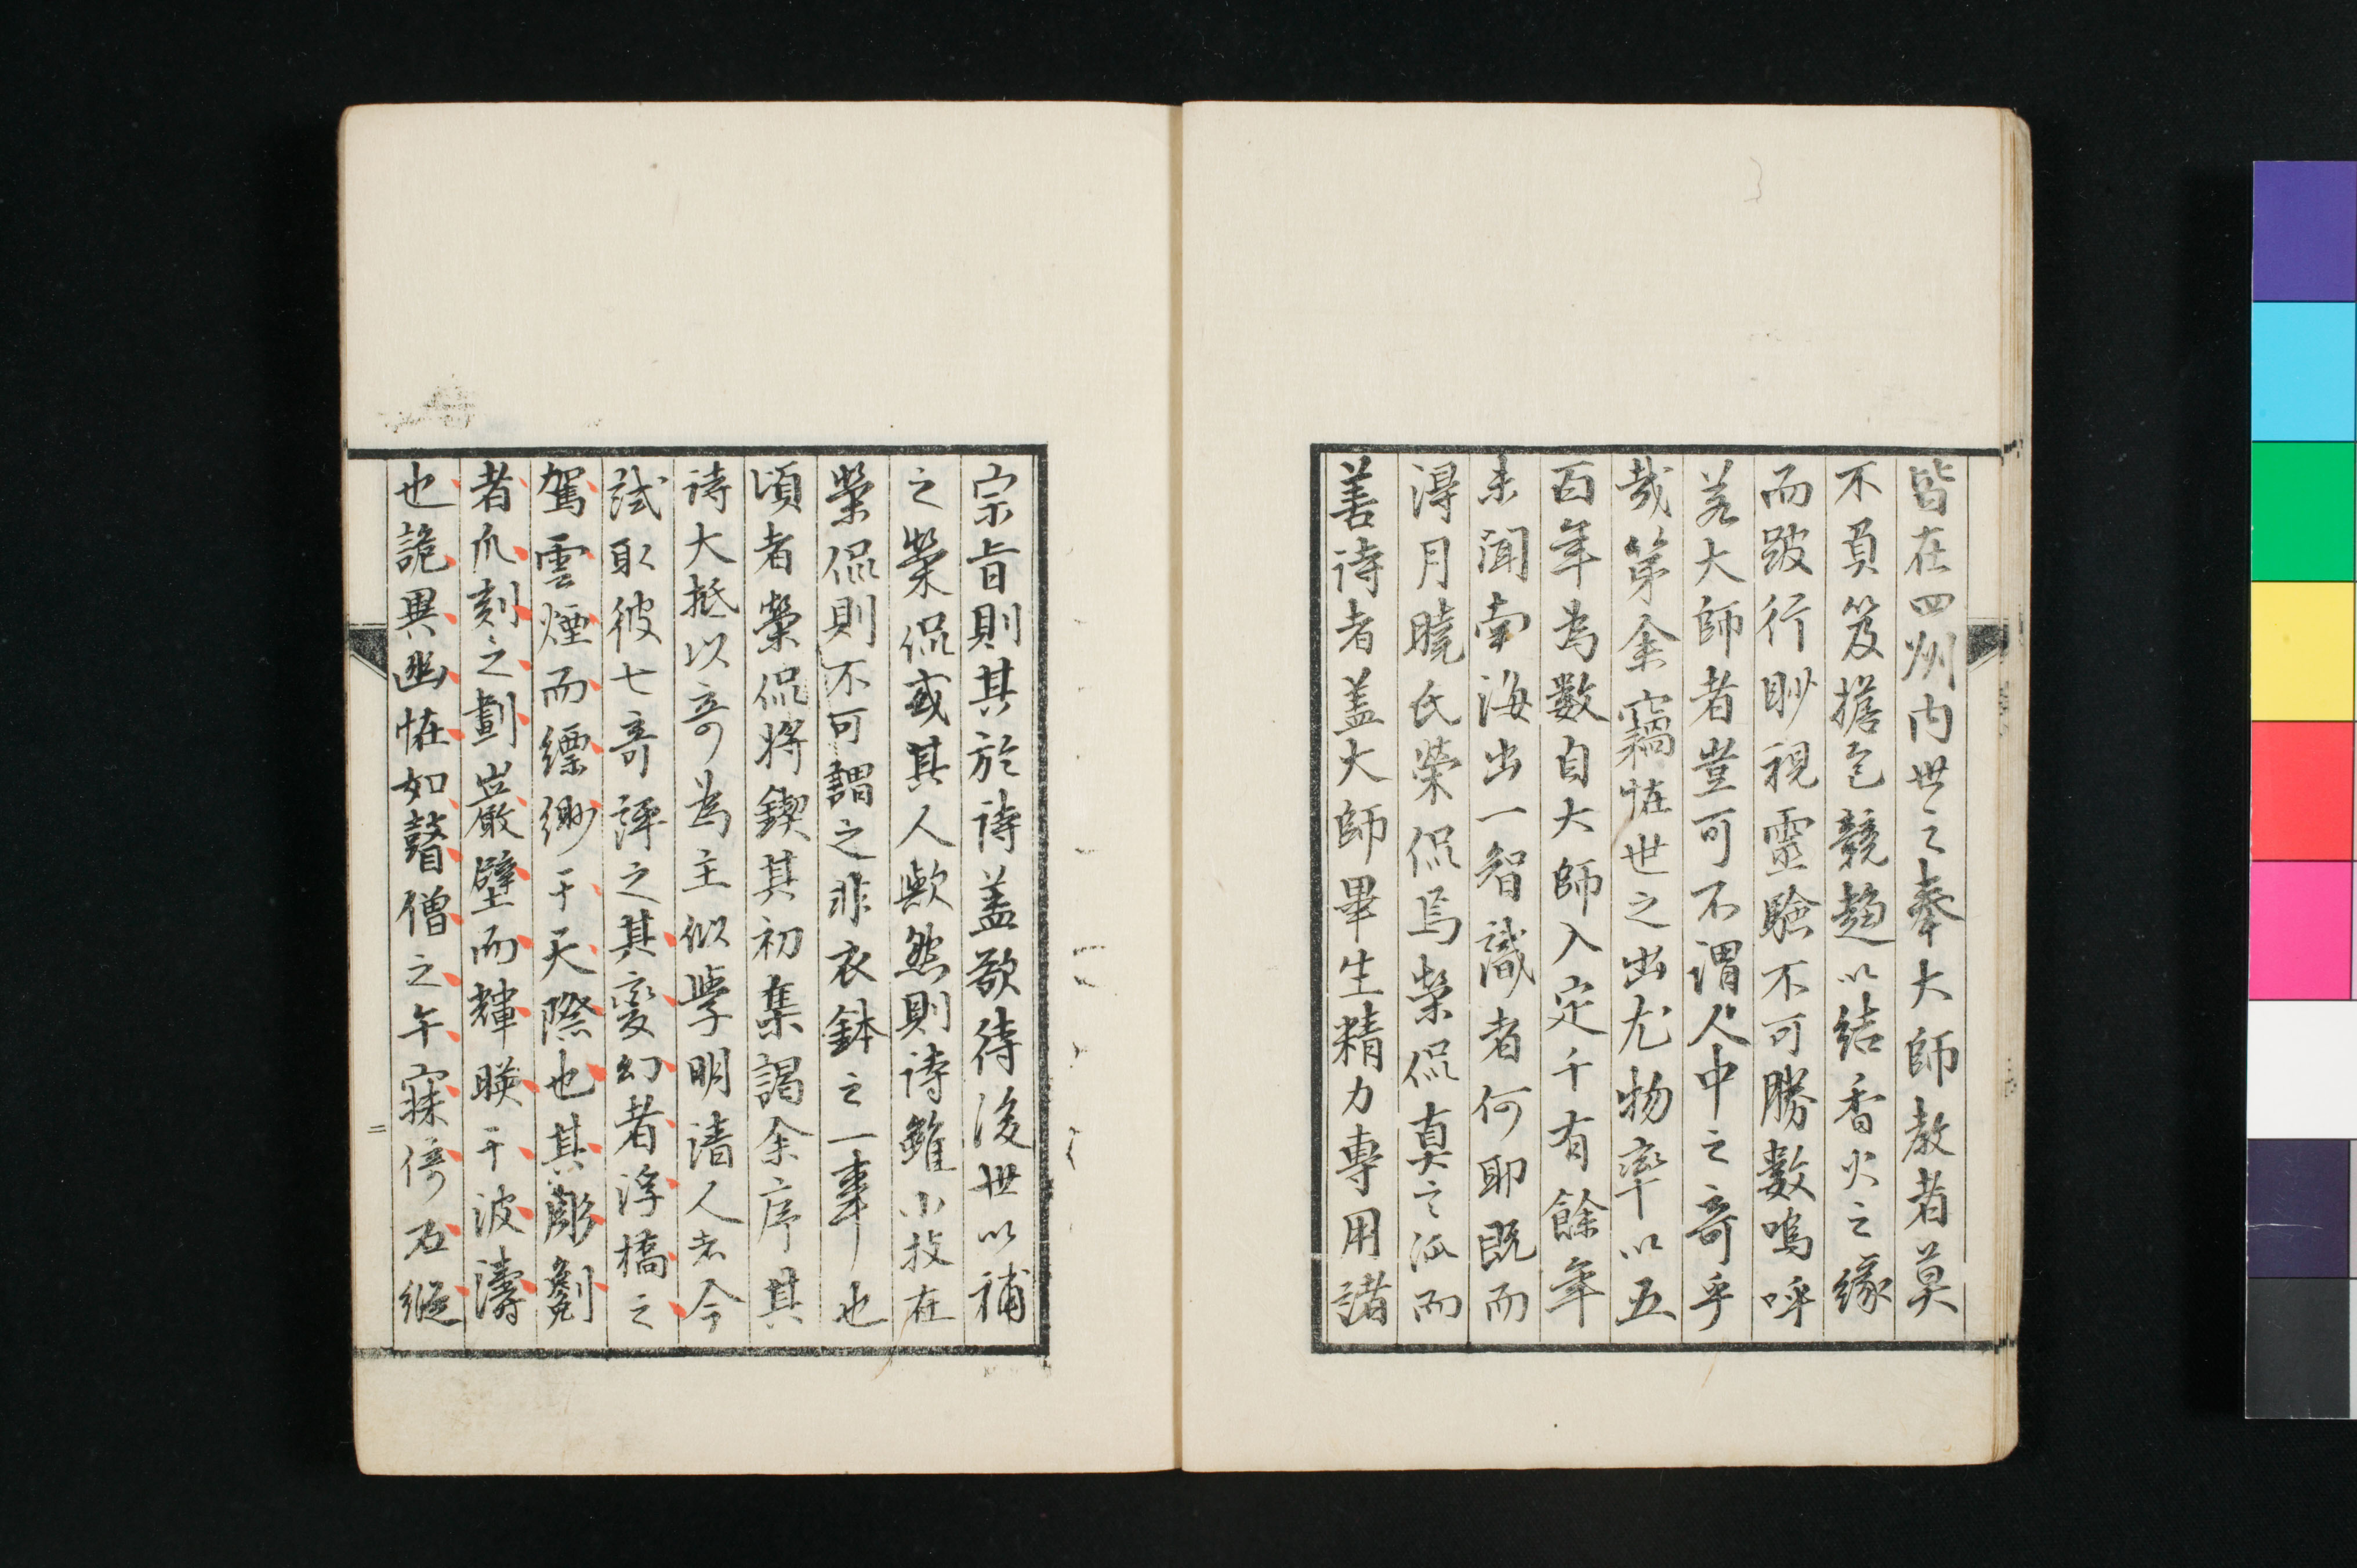 皆在四州内世之奉大師教者莫
不負笈擔包競趨以結香火之緣
而跛行眇視靈驗不可勝數嗚呼
若大師者豈可不謂人中之奇乎
哉第余竊恠世之出尤物率以五
百年為數自大師入定千有餘年
未聞南海出一智識者何耶既而
得月曉氏榮侃焉榮侃真之派而
善詩者蓋大師畢生精力專用諸
宗旨則其於詩蓋欲待後世以補
之榮侃或其人歟然則詩雖小技在
榮侃則不可謂之非衣鉢之一事也
頃者榮侃將鍥其初集謁余序其
詩大抵以奇為主似學明清人者今
試取彼七奇評之其變幻者浮橋之
駕雲煙而縹緲于天際也其彫劖
者爪刻之劃巖壁而輝暎于波濤
也詭異幽恠如瞽僧之午寐倚石縱
二